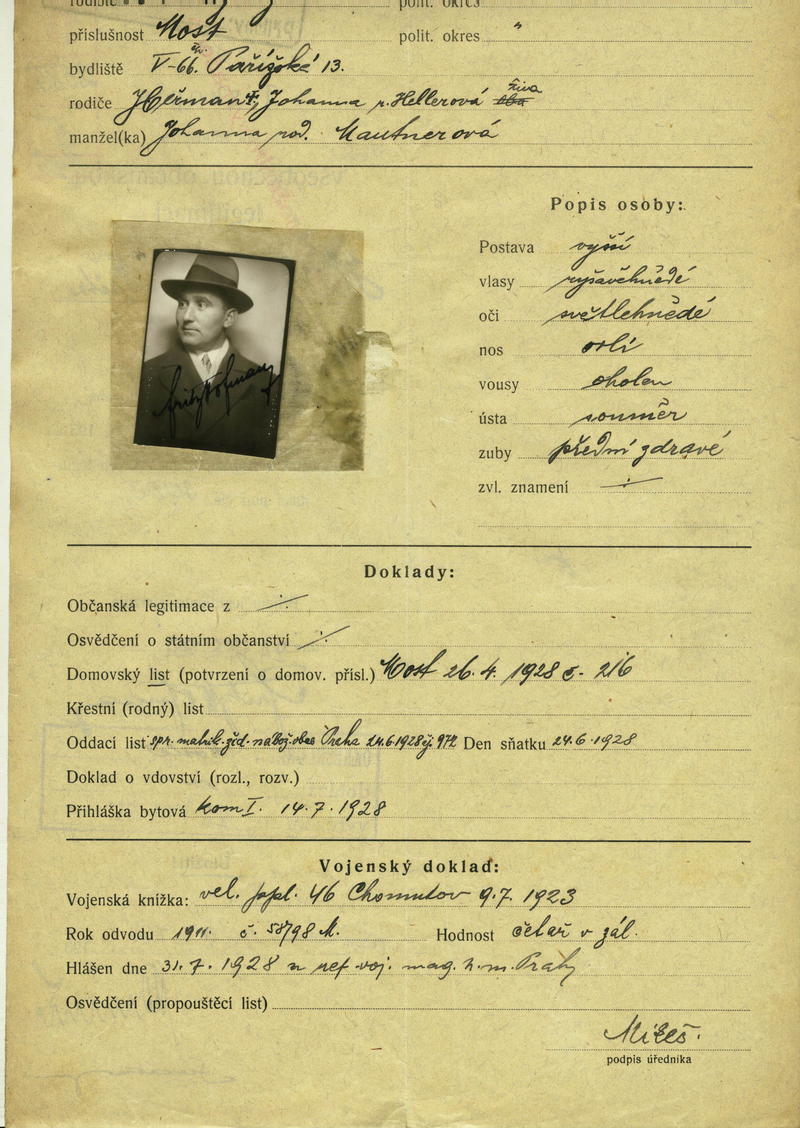 polit. okres
příslušnost Most polit. okres "
bydliště V-66. Pařížská 13.
rodiče Heřman †, Johanna r. Hellerová živa
manžel(ka) Johanna roz. Mautnerová
Popis osoby:
Postava vyšší
vlasy ryšavěhnědé
oči světlehnědé
nos orlí
vousy oholen
ústa souměr
zuby přední zdravé
zvl. znamení ·/.
Doklady:
Občanská legitimace z ·/.
Osvědčení o státním občanství ·/.
Domovský list (potvrzení o domov. přísl.) Most 26. 4. 1928 č. 216
Křestní (rodný) list
Oddací list spr. matrik. žid. nábož. obce Praha 24.6.1928 čj. 972 Den sňatku 24.6.1928
Doklad o vdovství (rozl., rozv.)
Přihláška bytová kom I. 14. 7. 1928
Vojenský doklad:
Vojenská knížka: vel. ppl. 46 Chomutov 9.7. 1923
Rok odvodu 1911. č. Hodnost četař v zál.
Hlášen dne 31. 7. 1928 u ref. voj. mag. h. m. Prahy
Osvědčení (propouštěcí list)
podpis úředníka